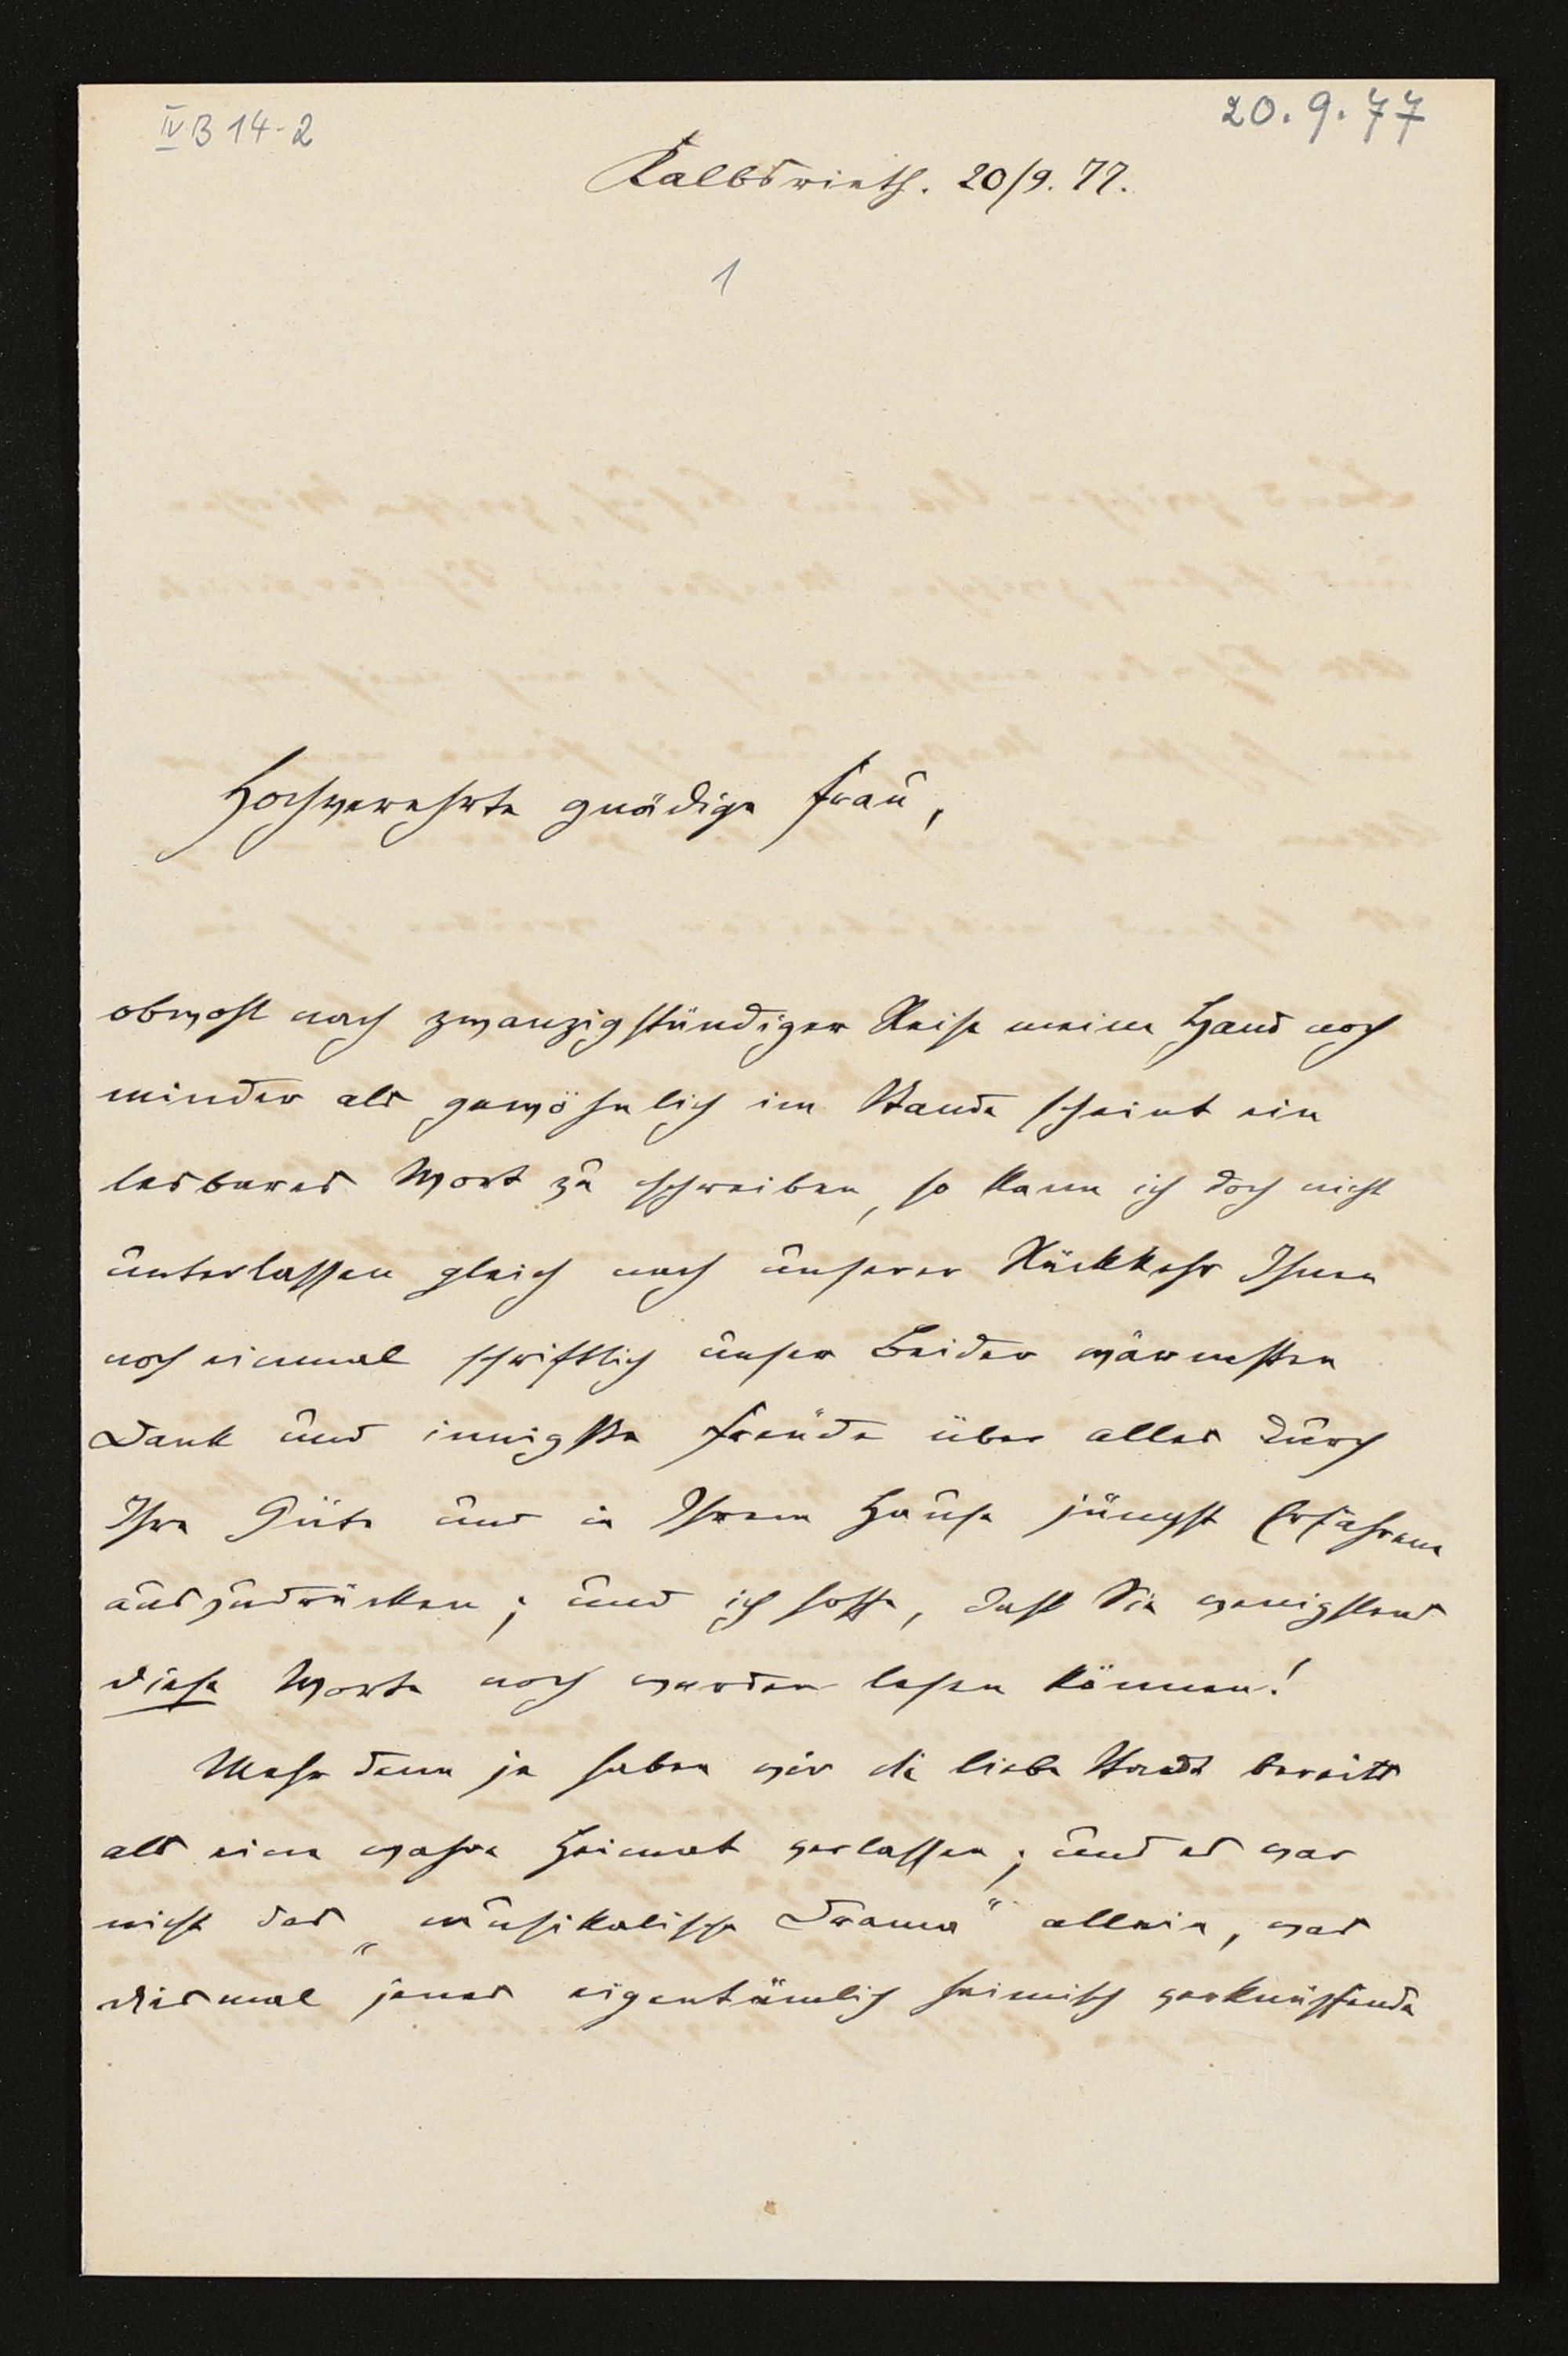 IV B 14-2
20.9.77
Kalbsrieth. 20/9. 77.
1
Hochverehrte gnädige Frau,
obwohl nach zwanzigstündiger Reise meine Hand noch
minder als gewöhnlich im Stande scheint ein
lesbares Wort zu schreiben, so kann ich doch nicht
unterlassen gleich nach unserer Rückkehr Ihnen
noch einmal schriftlich unser Beider wärmsten
Dank und innigste Freude über alles durch
Ihre Güte und in Ihrem Hause jüngst Erfahrene
auszudrücken; und ich hoffe, dass Sie wenigstens
diese Worte noch werden lesen können!
Mehr denn je haben wir die liebe Stadt bereits
als eine wahre Heimat verlassen; und es war
nicht das „musikalische Drama" allein, was
diesmal jenes eigentümlich heimisch verknüpfende